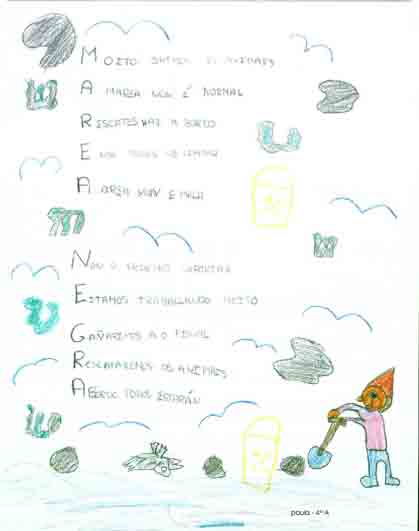 MOITO SUFREN OS ANIMAIS
A MAREA NON É NORMAL
RESCATES HAI A BORDO
E NON TODOS
A AREA NON E MALA
NON O PODEMOS SOPORTAR
ESTAMOS TRABALLANDO MOITO
GAÑAREMOS AO FINAL
RESCATAREMOS OS ANIMAIS
A BORDO TODOS ESTARÁN
PAULA - 4º A